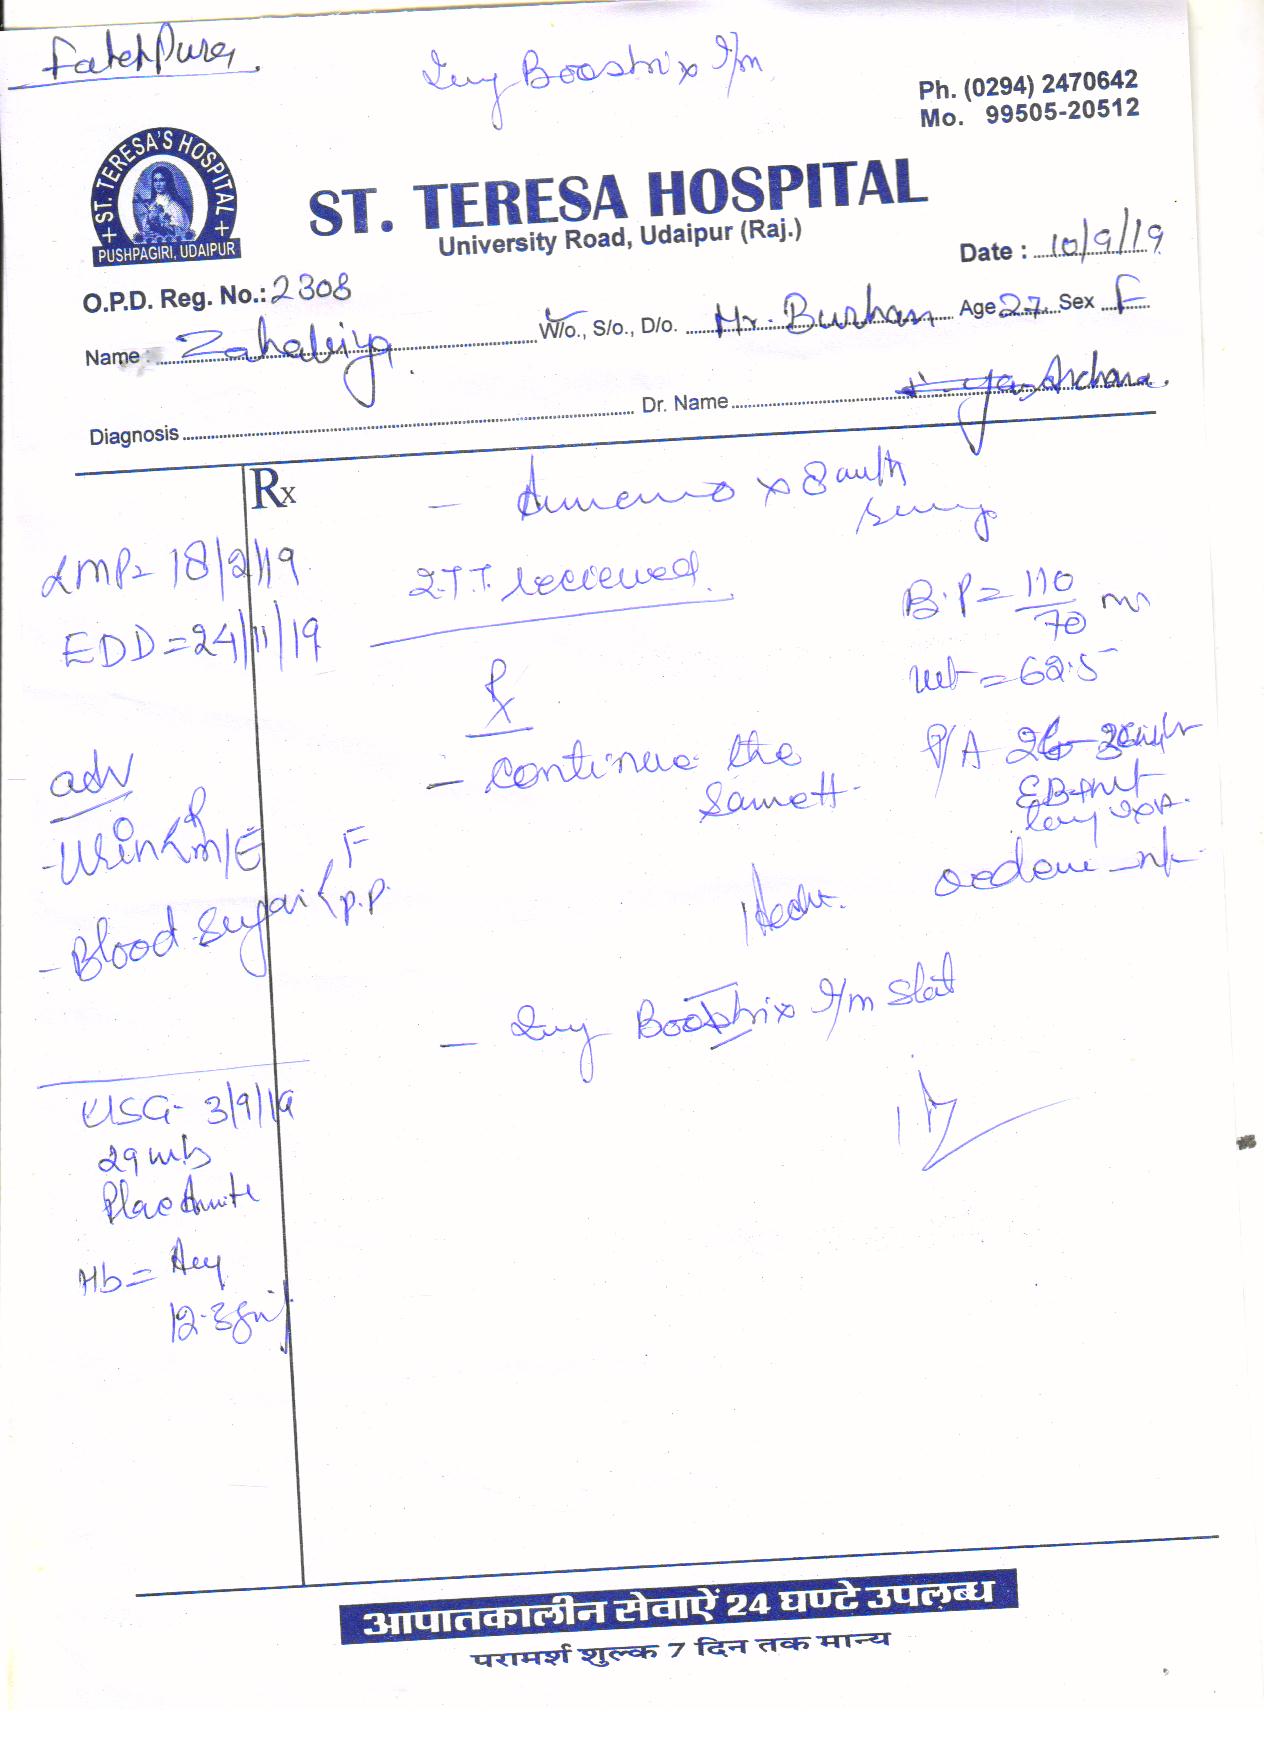 Fatehpura.
Inj Boostrix I/m
Ph. (0294) 2470642
Mo. 99505-20512
ST. TERESA'S HOSPITAL
PUSHPAGIRI, UDAIPUR
ST. TERESA HOSPITAL
University Road, Udaipur (Raj.)
Date : 10/9/19
O.P.D. Reg. No.: 2308
Name : Zahabiya W/o., S/o., D/o. Mr. Burhan Age 27 Sex F
Diagnosis Dr. Name Archana.
Rx
- x 8 mth
LMP= 18/2/19
2.T.T. recieved
B.P = 110/70 m
EDD = 24/11/19
wt = 62.5
Rx
- continue the
same tt.
P/A
adv
- Urine R/M/E
- Blood sugar < F, p.p.
oedema - nil
- Inj Boostrix I/m stat
USG- 3/9/19
29 wks
Plac
Hb =
12.3 gm
आपातकालीन सेवाऐं 24 घण्टे उपलब्ध
परामर्श शुल्क 7 दिन तक मान्य